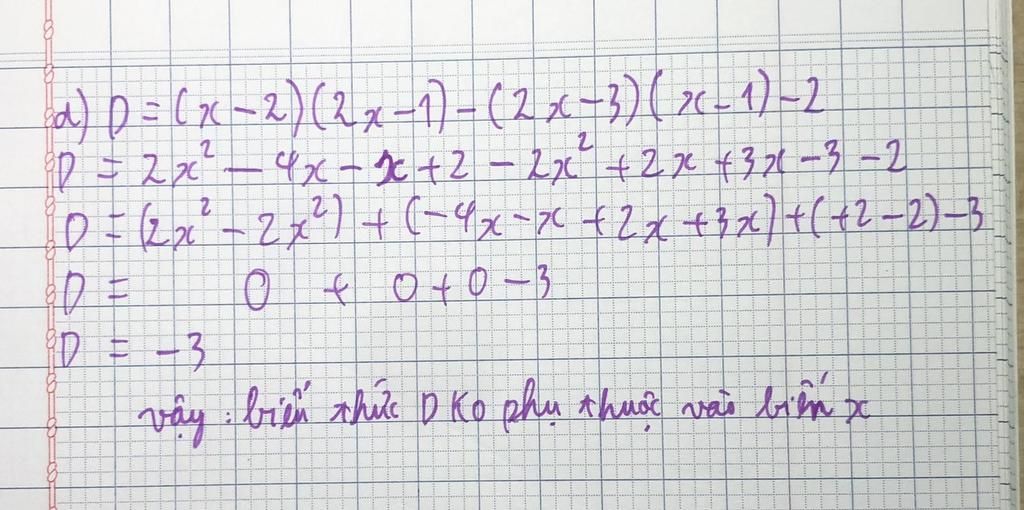 d) D = (x - 2)(2x - 1) - (2x - 3)(x - 1) - 2
D = 2x² - 4x - x + 2 - 2x² + 2x + 3x - 3 - 2
D = (2x² - 2x²) + (-4x - x + 2x + 3x) + (+2 - 2) - 3
D = 0 + 0 + 0 - 3
D = -3
vậy : biến thức D KO phụ thuộc vào biến x